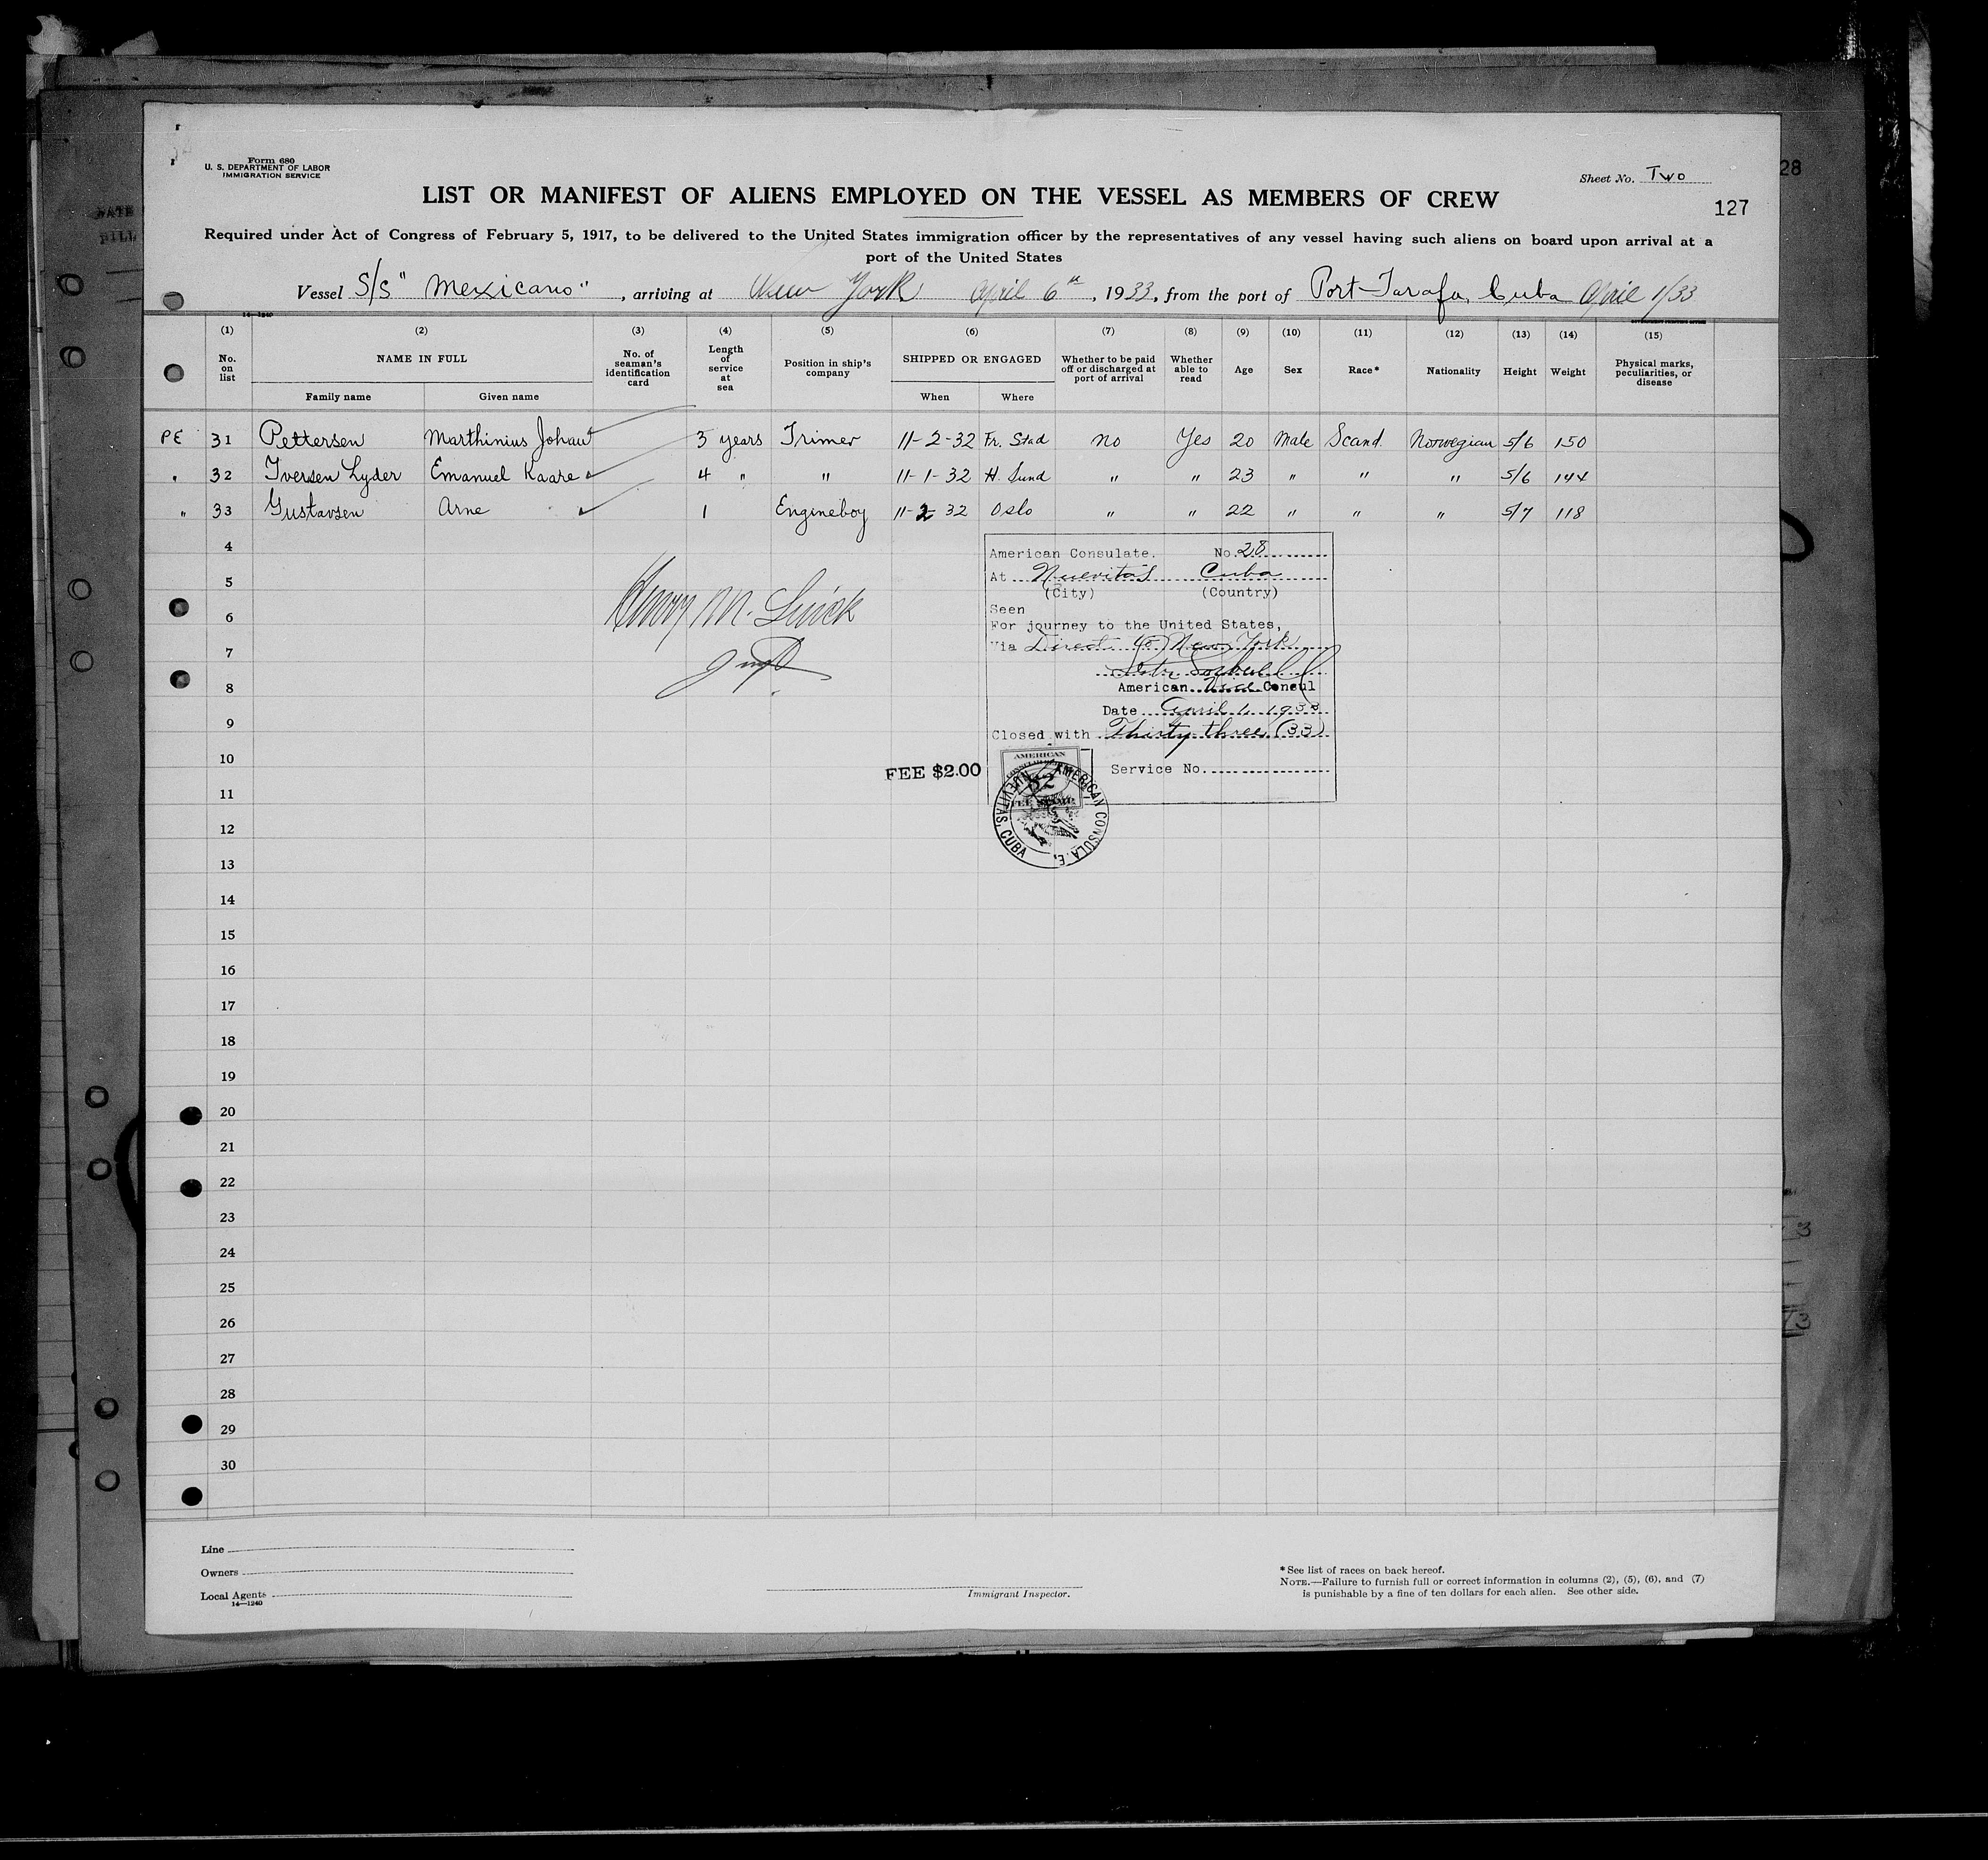 Form 680
U. S. DEPARTMENT OF LABOR
IMMIGRATION SERVICE
Sheet No. Two
28
LIST OR MANIFEST OF ALIENS EMPLOYED ON THE VESSEL AS MEMBERS OF CREW
127
Required under Act of Congress of February 5, 1917, to be delivered to the United States immigration officer by the representatives of any vessel having such aliens on board upon arrival at a
port of the United States
Vessel S/S "Mexicano", arriving at New York April 6th, 1933, from the port of Port-Tarafa, Cuba April 1/33
14—1240
(1) (2) (3) (4) (5) (6) (7) (8) (9) (10) (11) (12) (13) (14) (15)
No. on list
NAME IN FULL
Family name
Given name
No. of seaman's identification card
Length of service at sea
Position in ship's company
SHIPPED OR ENGAGED
When
Where
Whether to be paid off or discharged at port of arrival
Whether able to read
Age
Sex
Race*
Nationality
Height
Weight
Physical marks, peculiarities, or disease
PE 31 Pettersen Marthinius Johan 3 years Trimer 11-2-32 Fr. Stad no Yes 20 Male Scand. Norwegian 5/6 150
" 32 Iversen Lyder Emanuel Kaare 4 " " 11-1-32 H. Sund " " 23 " " " 5/6 144
" 33 Gustavsen Arne 1 Engineboy 11-2-32 Oslo " " 22 " " " 5/7 118
4
5
6
7
8
9
10
11
12
13
14
15
16
17
18
19
20
21
22
23
24
25
26
27
28
29
30
American Consulate. No. 28
At Nuevitas Cuba
(City) (Country)
Seen
For journey to the United States,
Via Direct to New York
American Vice Consul
Date April 1, 1933
Closed with Thirty three (33)
Service No.
FEE $2.00
AMERICAN
FEE STAMP
AMERICAN CONSULATE, NUEVITAS, CUBA
Line
Owners
Local Agents
14—1240
Immigrant Inspector.
* See list of races on back hereof.
NOTE.—Failure to furnish full or correct information in columns (2), (5), (6), and (7)
is punishable by a fine of ten dollars for each alien. See other side.